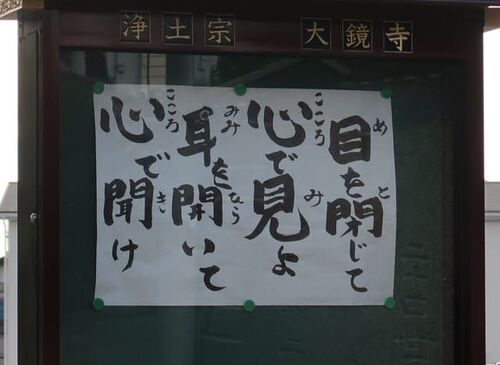 浄土宗 大鏡寺
目を閉じて
心で見よ
耳を開いて
心で聞け
め と
こころ み
みみ ひら
こころ き